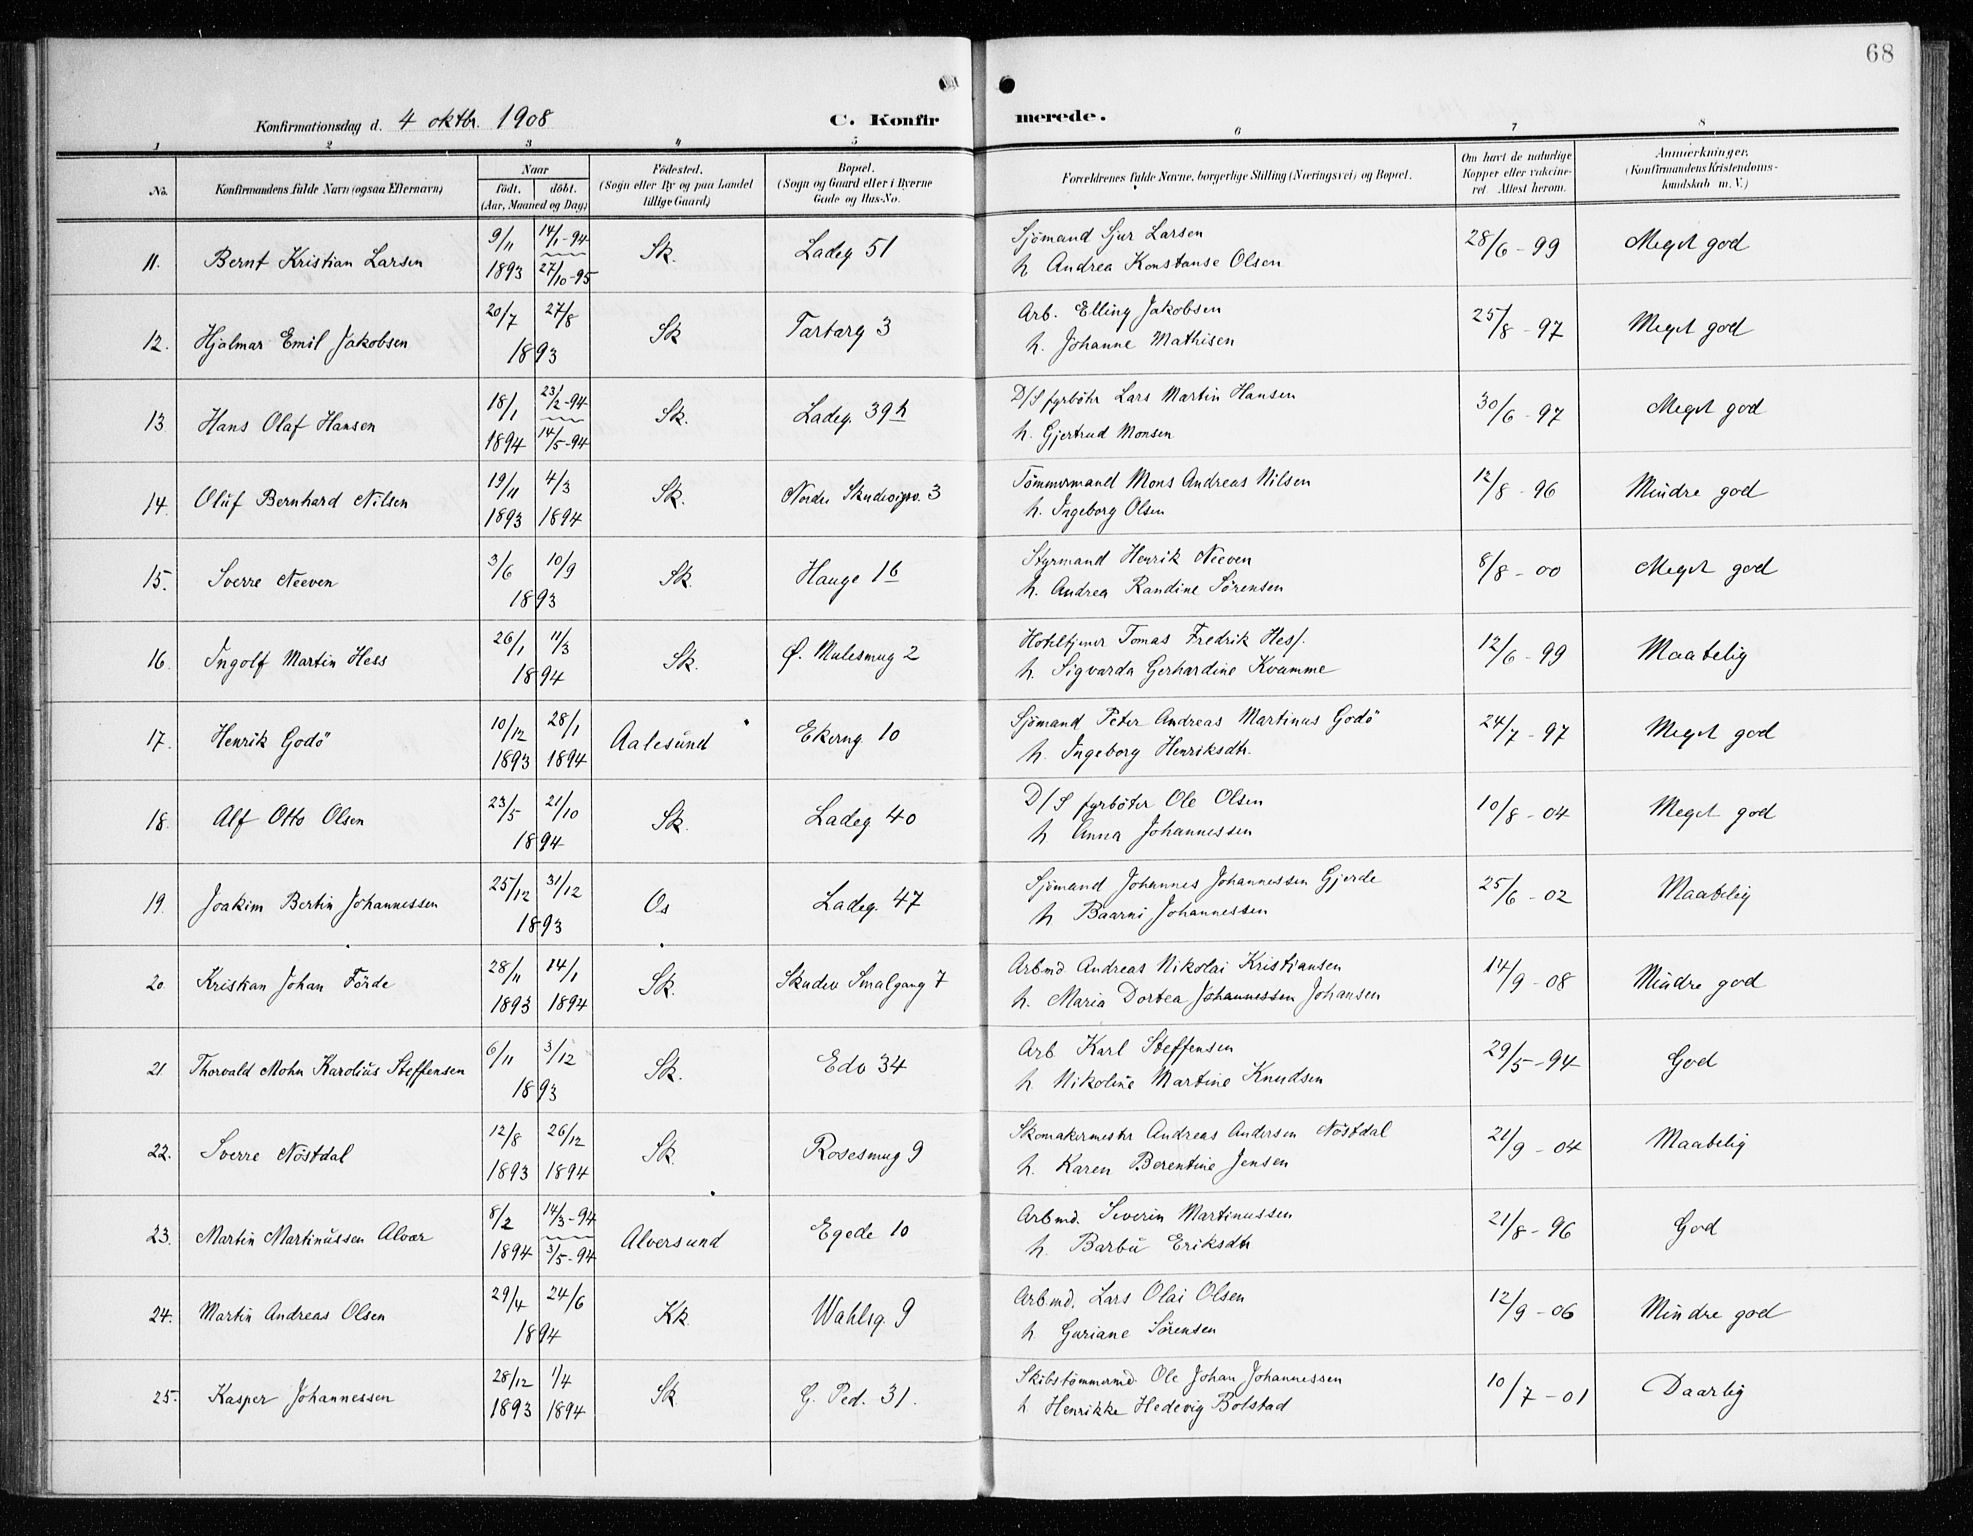 68
Konfirmationsdag d. 4 oktbr. 1908 C. Konfirmerede.
1 2 3 4 5 6 7 8
No. | Konfirmandens fulde Navn (ogsaa Efternavn) | Naar födt. döbt. (Aar, Maaned og Dag) | Födested. (Sogn eller By og paa Landet tillige Gaard) | Bopæl. (Sogn og Gaard eller i Byerne Gade og Hus-No. | Forældrenes fulde Navne, borgerlige Stilling (Næringsvei) og Bopæl. | Om havt de naturlige Kopper eller vakcineret. Attest herom. | Anmærkninger. (Konfirmandens Kristendomskundskab m. V.)
11. Bernt Kristian Larsen | 9/11 1893 | 14/1-94 27/10-95 | Sk. | Ladeg 51 | Sjömand Sjur Larsen | 28/6-99 | Meget god
h Andrea Konstanse Olsen
12. Hjalmar Emil Jakobsen | 20/7 27/8 1893 | Sk | Tartarg 3 | Arb. Elling Jakobsen | 25/8-97 | Meget god
h. Johanne Mathisen
13 Hans Olaf Hansen | 18/1 1894 | 23/2-94 14/5-94 | Sk. | Ladeg. 39h | D/S fyrböter Lars Martin Hansen | 30/6-97 | Meget god
h. Gjertrud Monsen
14. Oluf Bernhard Nilsen | 19/11 1893 | 4/3 1894 | Sk. | Nordre Skudevigsv. 3 | Tömmermand Mons Andreas Nilsen | 12/8-96 | Mindre god
h. Ingeborg Olsen
15. Sverre Neeven | 3/6 10/9 1893 | Sk. | Hauge 16 | Styrmand Henrik Neeven | 8/8-00 | Meget god
h. Andrea Randine Sörensen
16. Ingolf Martin Hess | 26/1 11/3 1894 | Sk. | Ø. Mulesmug 2 | Hoteltjener Tomas Fredrik Hess. | 12/6-99 | Maatelig
h Sigvarda Gerhardine Kvamme
17. Henrik Godö | 10/12 1893 | 28/1 1894 | Aalesund | Ekerng. 10 | Sjömand Peter Andreas Martinus Godö | 24/7-97 | Meget god
h. Ingeborg Henriksdtr.
18. Alf Otto Olsen | 23/5 21/10 1894 | Sk. | Ladeg 40 | D/S fyrböter Ole Olsen | 10/8-04 | Meget god
h Anna Johannessen
19. Joakim Bertin Johannessen | 25/12 31/12 1893 | Os | Ladeg. 47 | Sjömand Johannes Johannessen Gjerde | 25/6-02 | Maatelig
h Baarni Johannessen
20. Kristian Johan Förde | 28/11 1893 | 14/1 1894 | Sk. | Skudev Smalgang 7 | Arbmd Andreas Nikolai Kristiansen | 14/9-08 | Mindre god
h. Maria Dortea Johannessen Johansen
21 Thorvald Mohn Karolius Steffensen | 6/11 3/12 1893 | Sk. | Edv 34 | Arb Karl Steffensen | 29/5-94 | God
h Nikoline Martine Knudsen
22. Sverre Nöstdal | 12/8 1893 | 26/12 1894 | Sk. | Rosesmug 9 | Skomakermester Andreas Andersen Nöstdal | 21/9-04 | Maatelig
h. Karen Berentine Jensen
23. Martin Martinussen Alver | 8/2 1894 | 14/3-94 3/5-94 | Alversund | Egede 10 | Arbmd. Severin Martinussen | 21/8-96 | God
h. Barbu Eriksdtr
24. Martin Andreas Olsen | 29/4 24/6 1894 | Kk. | Wahlsg. 9 | Arbmd. Lars Olai Olsen | 12/9-06 | Mindre god
h Guriane Sörensen
25. Kasper Johannessen | 28/12 1893 | 1/4 1894 | Sk | G. Ped. 31. | Skibstömmermd. Ole Johan Johannessen | 10/7-01 | Daarlig
h Henrikke Hedevig Bolstad